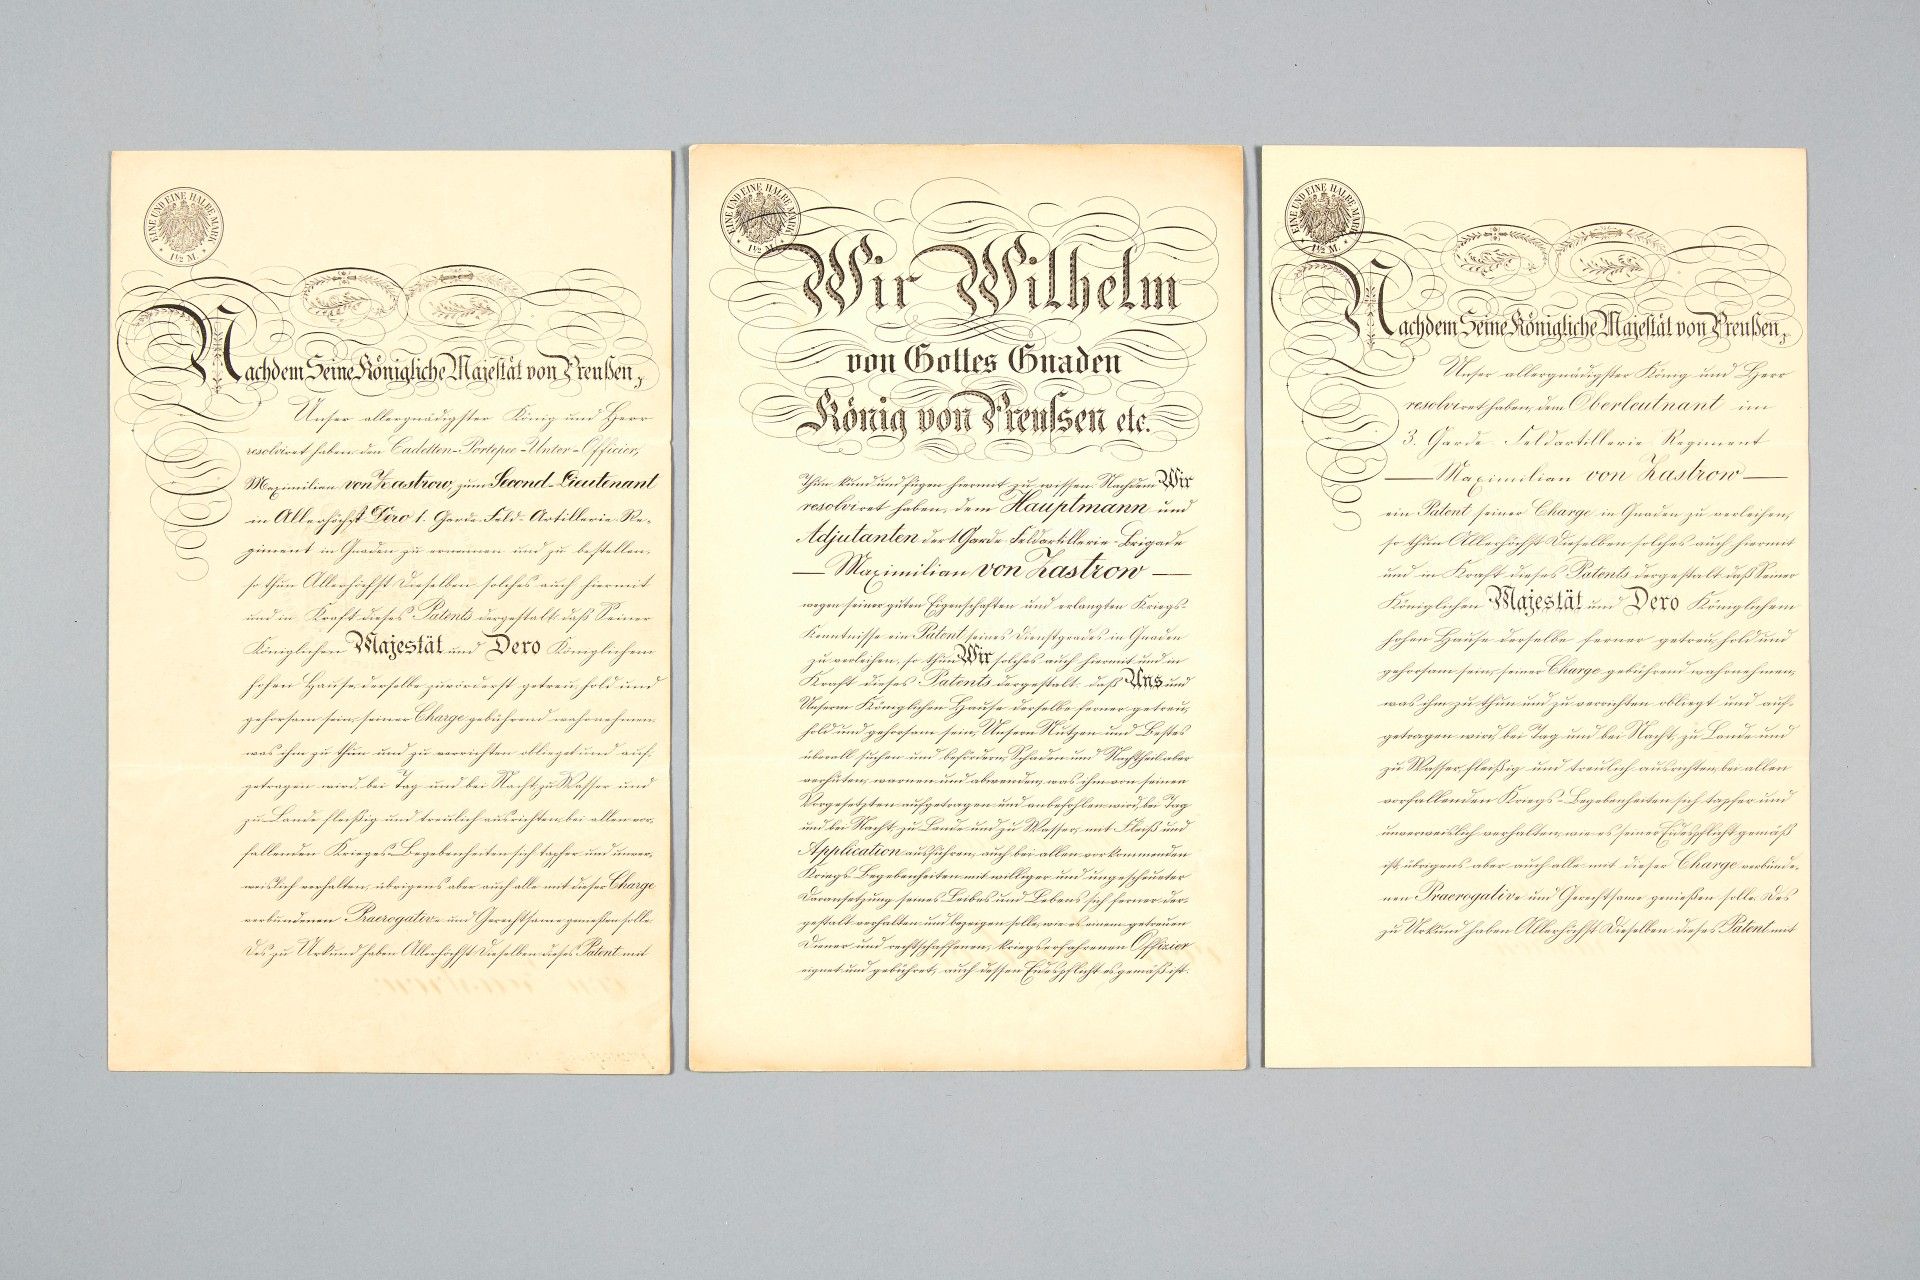 EINE UND EINE HALBE MARK
1½ M.
Nachdem Seine Königliche Majestät von Preußen,
Unser allergnädigster König und Herr
resolviret haben, den Cadetten-Portepee-Unter-Officier,
Maximilian von Zastrow, zum Second-Lieutenant
in Allerhöchst Dero 1. Garde-Feld-Artillerie-Re-
giment in Gnaden zu ernennen und zu bestellen,
so thun Allerhöchst Dieselben solches auch hiermit
und in Kraft dieses Patents dergestalt: daß Seiner
Königlichen Majestät und Dero Königlichem
hohen Hause, derselbe zuvörderst getreu, hold und
gehorsam sein, seiner Charge gebührend wahrnehmen,
was ihm zu thun und zu verrichten oblieget und auf-
getragen wird, bei Tag und bei Nacht, zu Wasser und
zu Lande fleißig und treulich ausrichten, bei allen vor-
fallenden Krieges-Begebenheiten sich tapfer und unver-
weislich verhalten, übrigens aber auch alle mit dieser Charge
verbundenen Praerogative und Gerechtsame genießen solle.
Des zu Urkund haben Allerhöchst Dieselben dieses Patent mit
EINE UND EINE HALBE MARK
1½ M.
Wir Wilhelm
von Gottes Gnaden
König von Preussen etc.
Thun kund und fügen hiermit zu wissen: Nachdem Wir
resolviret haben, dem Hauptmann und
Adjutanten der 1. Garde-Feldartillerie-Brigade
— Maximilian von Zastrow —
wegen seiner guten Eigenschaften und erlangten Kriegs-
Kenntnisse ein Patent seines Dienstgrades in Gnaden
zu verleihen, so thun Wir solches auch hiermit und in
Kraft dieses Patents dergestalt: daß Uns und
Unserm Königlichen Hause derselbe ferner getreu,
hold und gehorsam sein, Unsern Nutzen und Bestes
überall suchen und befördern, Schaden und Nachtheil aber
verhüten, warnen und abwenden, was ihm von seinen
Vorgesetzten aufgetragen und anbefohlen wird, bei Tag
und bei Nacht, zu Lande und zu Wasser, mit Fleiß und
Application ausführen, auch bei allen vorkommenden
Kriegs-Begebenheiten mit williger und ungescheueter
Daransetzung seines Leibes und Lebens sich ferner der-
gestalt verhalten und bezeigen solle, wie es einem getreuen
Diener und rechtschaffenen, kriegserfahrenen Offizier
eignet und gebühret, auch dessen Eidespflicht es gemäß ist.
EINE UND EINE HALBE MARK
1½ M.
Nachdem Seine Königliche Majestät von Preußen,
Unser allergnädigster König und Herr
resolviret haben, dem Oberleutnant im
3. Garde-Feldartillerie-Regiment
— Maximilian von Zastrow —
ein Patent seiner Charge in Gnaden zu verleihen,
so thun Allerhöchst Dieselben solches auch hiermit
und in Kraft dieses Patents dergestalt: daß Seiner
Königlichen Majestät und Dero Königlichem
hohen Hause derselbe ferner getreu, hold und
gehorsam sein, seiner Charge gebührend wahrnehmen,
was ihm zu thun und zu verrichten obliegt und auf-
getragen wird, bei Tag und bei Nacht, zu Lande und
zu Wasser, fleißig und treulich ausrichten, bei allen
vorfallenden Kriegs-Begebenheiten sich tapfer und
unverweislich verhalten, wie es seiner Eidespflicht gemäß
ist, übrigens aber auch alle mit dieser Charge verbunde-
nen Praerogative und Gerechtsame genießen solle. Des
zu Urkund haben Allerhöchst Dieselben dieses Patent mit